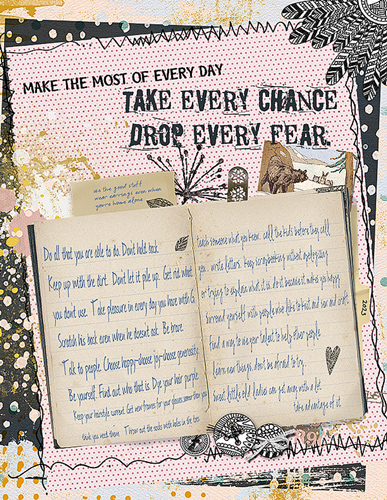 MAKE THE MOST OF EVERY DAY
TAKE EVERY CHANCE
DROP EVERY FEAR.
use the good stuff
wear earrings even when
you're home alone
Do all that you are able to do. Don't hold back.
Keep up with the dirt. Don't let it pile up. Get rid what
you don't use. Take pleasure in every day you have with G
Scratch his back even when he doesnt ask. Be brave.
Talk to people. Choose happy-choose joy-choose generosity
Be yourself. Find out who that is. Dye your hair purple
Keep your hairstyle current. Get new frames for your glasses sooner than you
think you need them. Throw out the socks with holes in the toes
teach someone what you know. call the kids before they call
you. write letters. keep scrapbooking without apologizing
or trying to explain what it is. do it because it makes you happy.
surround yourself with people who like to knit and sew and craft.
find a way to use your talent to help other people
learn new things. don't be afraid to try.
sweet little old ladies can get away with a lot.
take advantage of it.
2022